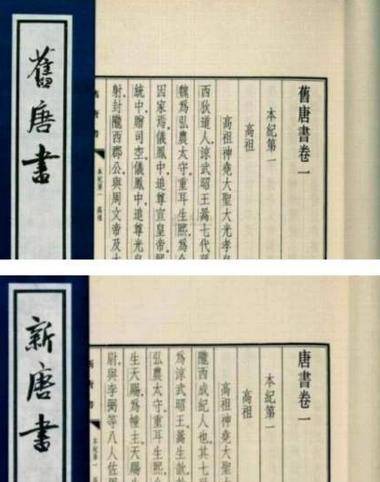 舊唐書
舊唐書卷一
本紀第一
高祖
高祖神堯大聖大光孝皇
西狄道人涼武昭王暠七代
魏為弘農太守重耳生熙為
因家焉儀鳳中追尊宣皇帝
統中贈司空儀鳳中追尊光皇
射封隴西郡公與周文帝及
舊唐書
本紀第一 高祖
新唐書
唐書卷一
本紀第一
高祖
高祖神堯大聖大
隴西成紀人也其七
為涼武昭王暠生歆
弘農太守重耳生熙
生天賜為幢主天賜
尉與李弼等八人佐周
本紀第一